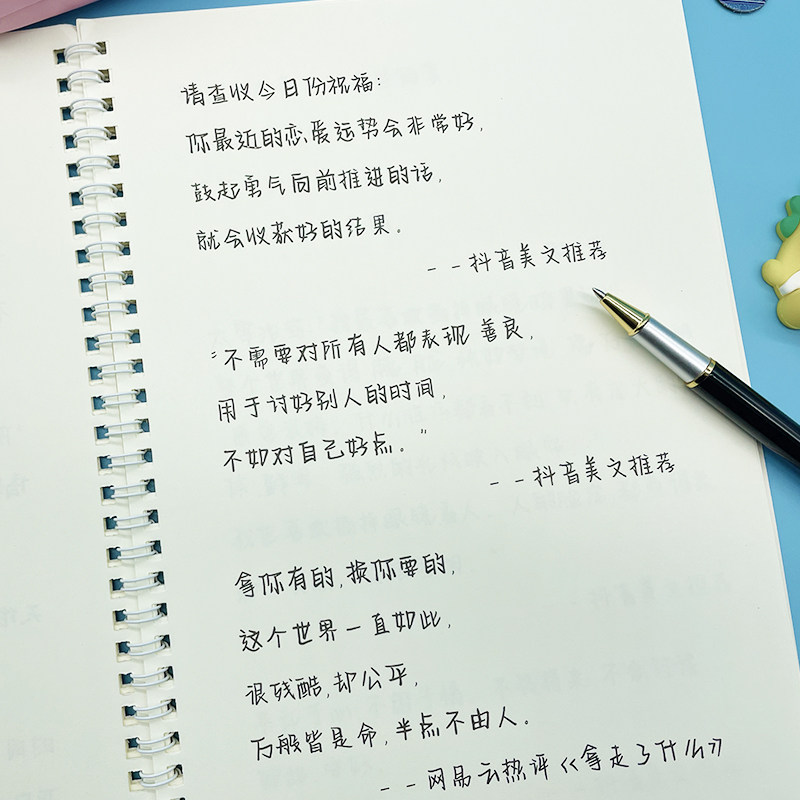 请查收今日份祝福:
你最近的恋爱运势会非常好,
鼓起勇气向前推进的话,
就会收获好的结果。
--抖音美文推荐
"不需要对所有人都表现善良,
用于讨好别人的时间,
不如对自己好点。"
--抖音美文推荐
拿你有的,换你要的,
这个世界一直如此,
很残酷,却公平,
万般皆是命,半点不由人。
--网易云热评《拿走了什么》